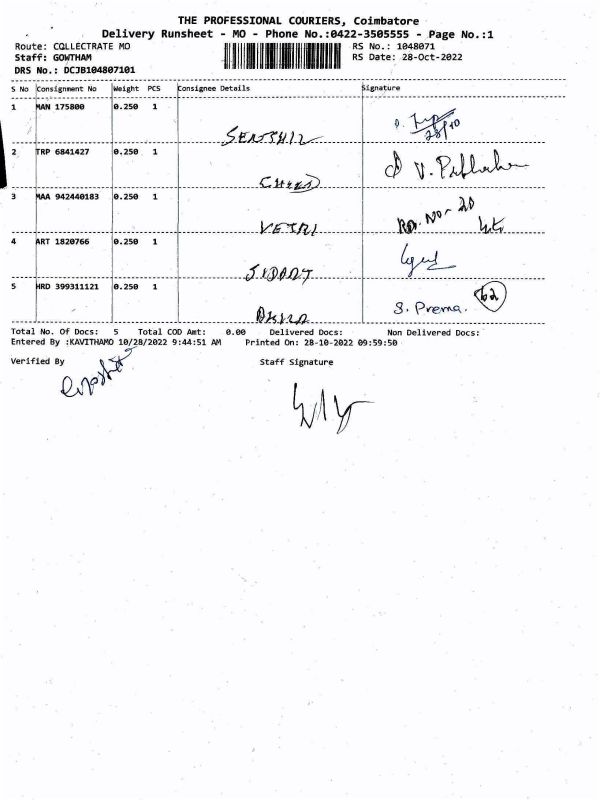 THE PROFESSIONAL COURIERS, Coimbatore
Delivery Runsheet - MO - Phone No.:0422-3505555 - Page No.:1
Route: COLLECTRATE MO RS No.: 1048071
Staff: GOWTHAM RS Date: 28-Oct-2022
DRS No.: DCJB104807101
S No Consignment No Weight PCS Consignee Details Signature
1 MAN 175800 0.250 1
SENTHIL 28/10
2 TRP 6841427 0.250 1
V. Prabhakar
3 MAA 942440183 0.250 1
VETRI Rm. No- 20
4 ART 1820766 0.250 1
5 HRD 399311121 0.250 1
S. Prema. 62
Total No. Of Docs: 5 Total COD Amt: 0.00 Delivered Docs: Non Delivered Docs:
Entered By :KAVITHAMO 10/28/2022 9:44:51 AM Printed On: 28-10-2022 09:59:50
Verified By Staff Signature